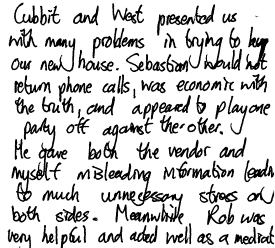 Cubbit and West presented us
with many problems in trying to buy
our new house. Sebastian would not
return phone calls, was economic with
the truth, and appeared to play one
party off against the other.
He gave both the vendor and
myself misleading information
to much unnecessary stress on
both sides. Meanwhile Rob was
very helpful and acted well as a